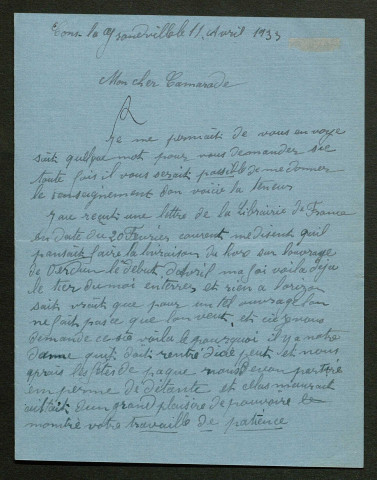 la Grandville le 11, Avril 1933
Mon cher Camarade
Je me permait de vous envoye
suit quelque mot pour vous demander sie
toute fois il vous serait possible de me donner
le renseignement don voicie la teneur
J'aie reçut une lettre de la Librairie de France
en date du 20 Fevrier courent me disent quil
pansait faire la livraison de livre sur l'ouvrage
de Verdun le début d'Avril ma foi voila déja
le tier du mois enterres et rien a l'orizon
sait vrait que pour un tel ouvrage l'on
ne fait pas ce que l'on veut, et cie je vous
demande ceste voila le pourquoi il y a notre
dame quit doit rentre d'ici peut et nous
les fetes de paque nous
en perme de détante et celas maurait
etait d'un grand plaisire de pouvoire
montré votre travaille de patience